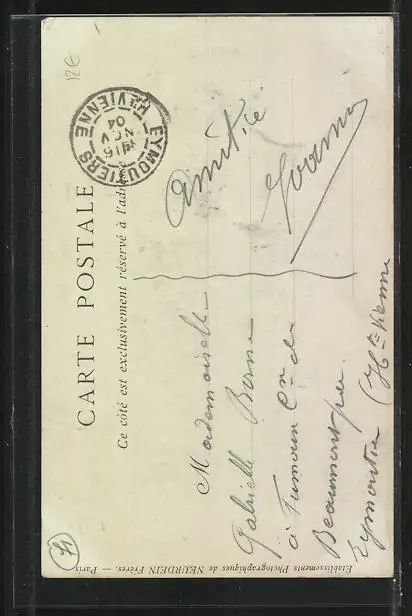 12€
CARTE POSTALE
Ce côté est exclusivement réservé à l'adresse
EYMOUTIERS
Hte VIENNE
15
NOV
04
Amitié
Mademoiselle
Gabrielle
à
Beaumont par
Eymoutiers (Hte Vienne
Établissements Photographiques de NEURDEIN Frères. — Paris